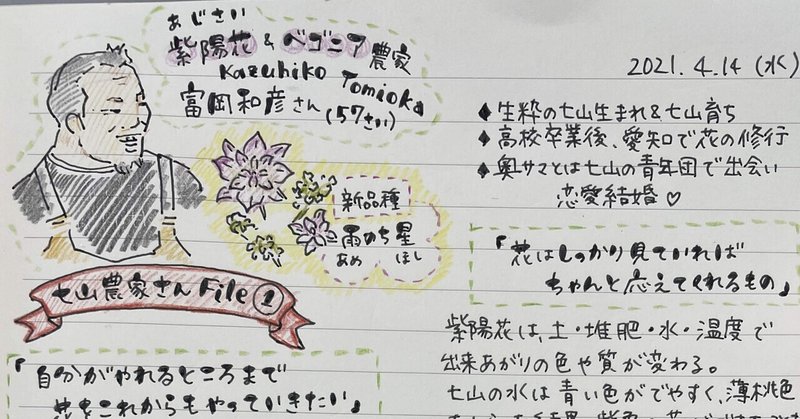 あじさい
紫陽花 & ベゴニア農家
Kazuhiko Tomioka
富岡和彦さん(57さい)
新品種
雨のち星
あめ ほし
七山農家さん File ①
「自分がやれるところまで
花をこれからもやっていきたい」
2021. 4.14 (水)
◆ 生粋の七山生まれ&七山育ち
◆ 高校卒業後、愛知で花の修行
◆ 奥サマとは七山の青年団で出会い
恋愛結婚♡
「花はしっかり見ていれば
ちゃんと応えてくれるもの」
紫陽花は、土・堆肥・水・温度で
出来あがりの色や質が変わる。
七山の水は青い色がでやすく、薄桃色